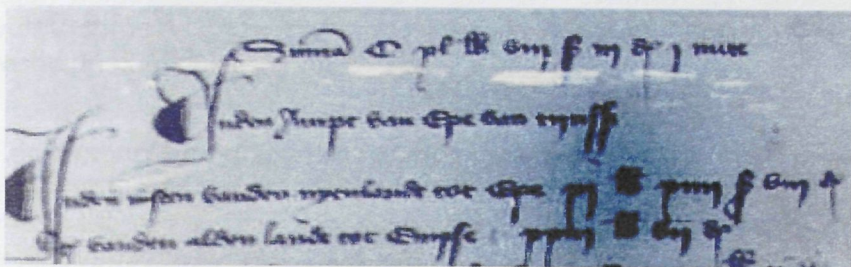 Summa C xl lb viii s iii d i mite
Inden Ampt van Epe van tynss
Inden irsten vanden nyenlande tot Epe xi lb xiiii s viii d
vanden alden lande tot Empse xxiii lb vii d